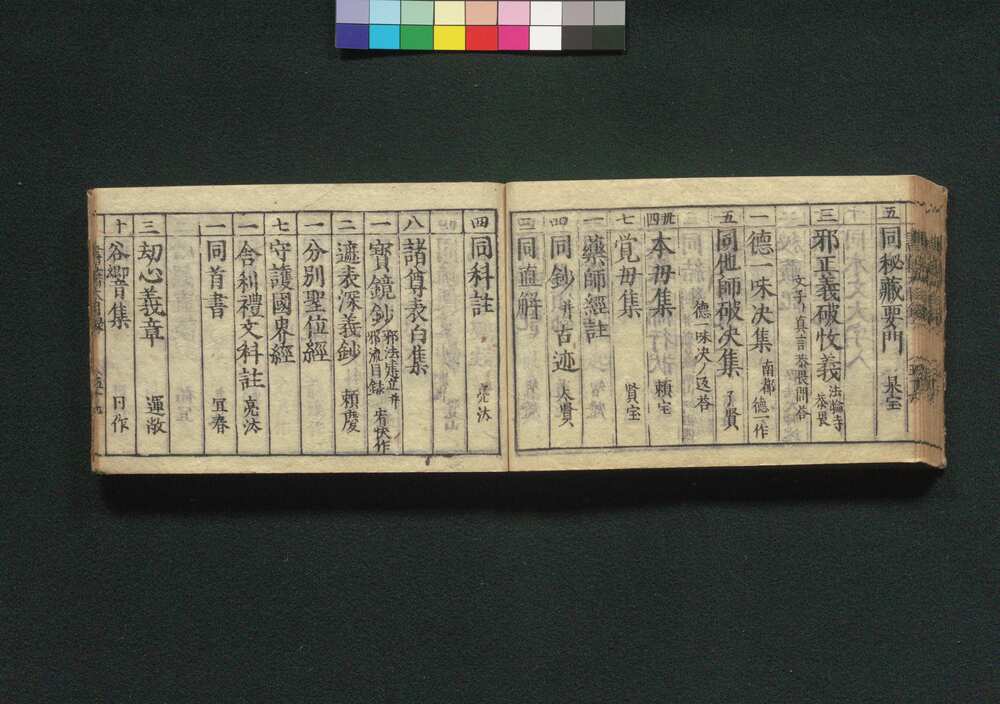 五 同秘藏要門 杲宝
三 邪正義破攸義 法輪寺 恭畏
文字ノ真言恭畏問答
一 德一味决集 南都 德一作
五 同他師破决集 了賢
德一味决ノ返荅
四 本毋集 頼宝
七 覚毋集 賢宝
一 藥師經註
四 同鈔 并古迹 太賢
三 同直解
四 同科註 亮汰
八 諸尊表白集
一 宝鏡鈔 邪法建立并邪流目録 宥快作
二 遮表深義鈔 頼慶
一 分别聖位經
七 守護國界經
一 舎利禮文科註 亮汰
一 同首書 宜春
三 刧心義章 運敞
十 谷響集 同作